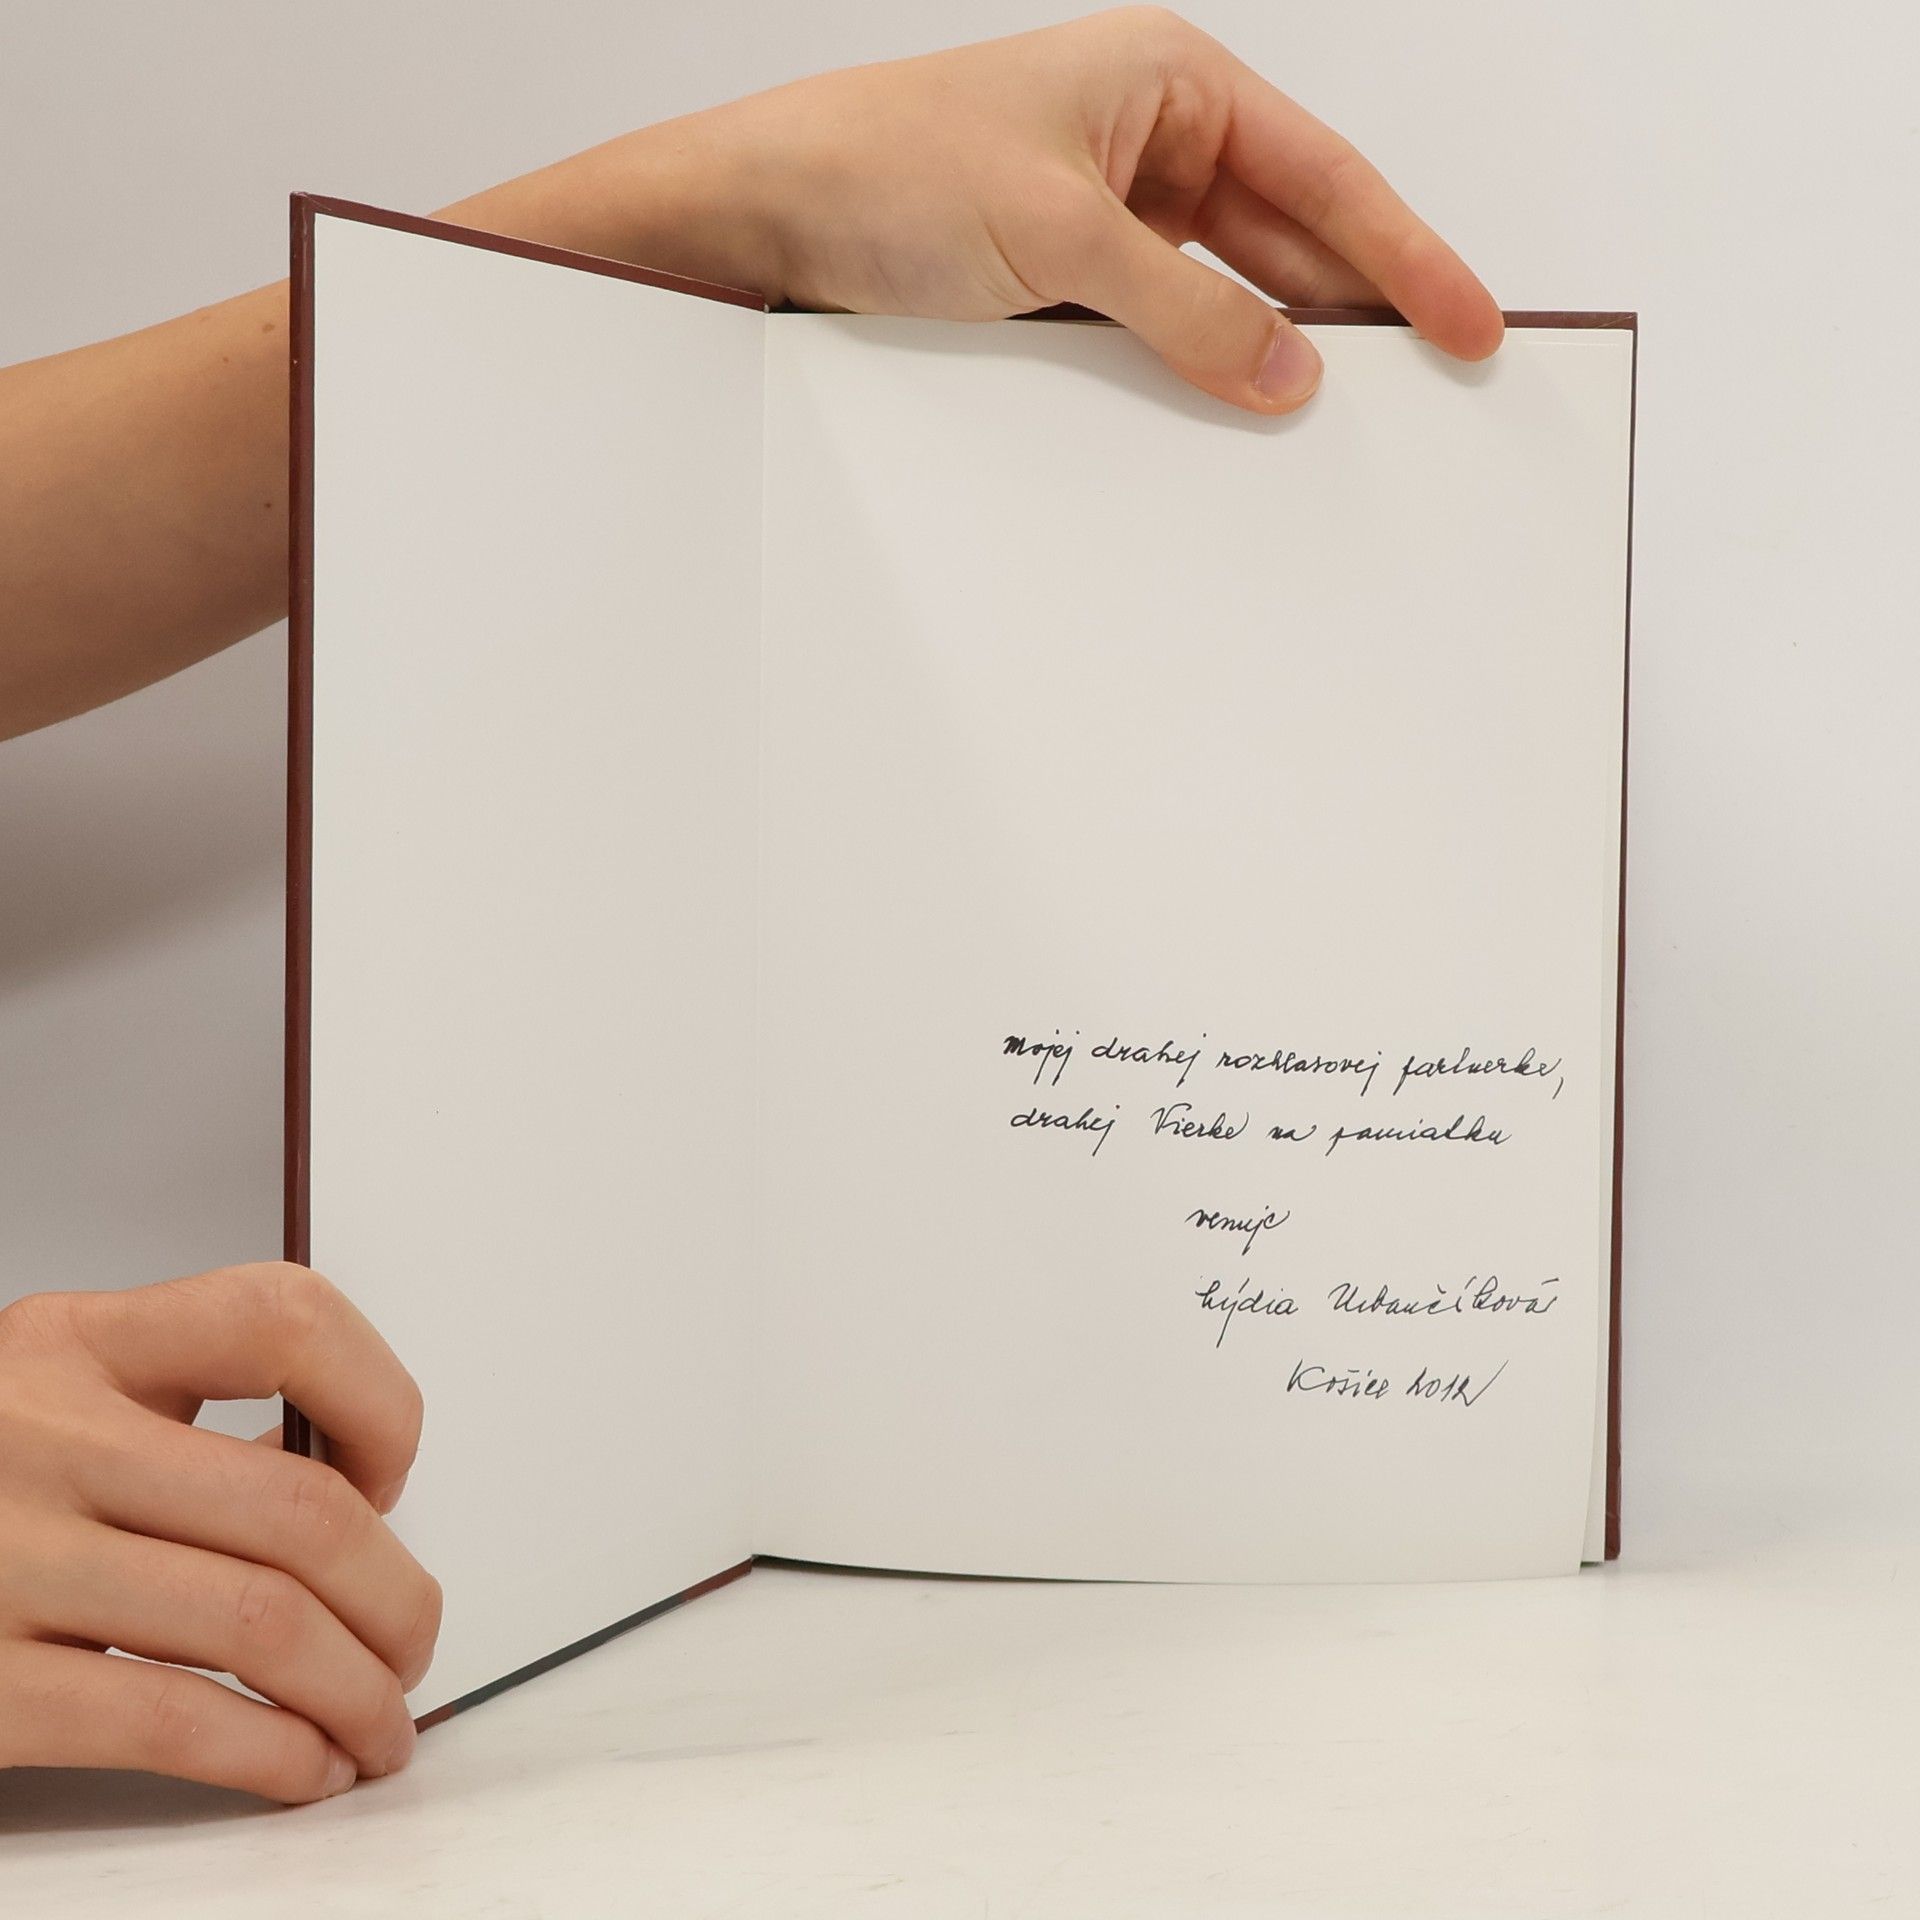 mojej drahej rozhlasovej partnerke,
drahej Vierke na pamiatku
venuje
Lýdia Urbančíková
Košice 2012